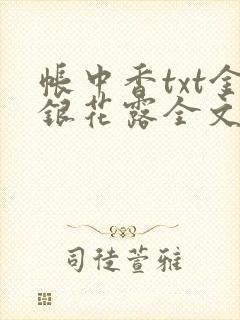 帐中香txt金
银花露全文
司徒萱雅